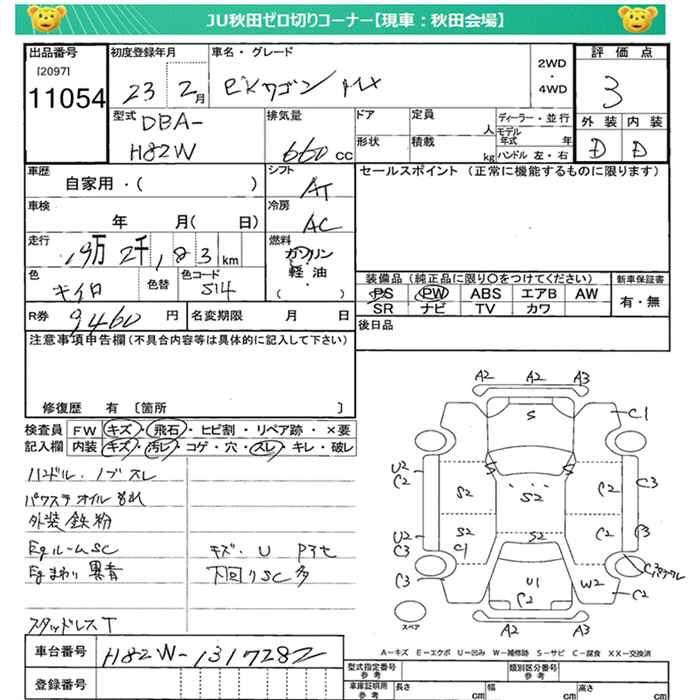 JU秋田ゼロ切りコーナー【現車：秋田会場】
出品番号 初度登録年月 車名・グレード 2WD・4WD 評価点
[2097]
11054 23 2月 eKワゴン MX 3
外装 内装
D D
型式 DBA-H82W 排気量 660cc ドア 定員 人 ディーラー・並行
形状 積載 kg モデル年式 年 ハンドル 左・右
車歴 自家用・( ) シフト AT セールスポイント (正常に機能するものに限ります)
車検 年 月( 日) 冷房 AC
走行 19万 2千 183 km 燃料 ガソリン 軽油 ( )
色 キイロ 色替 色コード S14
装備品 (純正品に限り○をつけてください) 新車保証書
PS PW ABS エアB AW 有・無
SR ナビ TV カワ
R券 9460 円 名変期限 月 日 後日品
注意事項申告欄(不具合内容等は具体的に記入して下さい)
修復歴 有 〔箇所 〕
検査員 FW キズ・飛石・ヒビ割・リペア跡・×要
記入欄 内装 キズ・汚レ・コゲ・穴・スレ・キレ・破レ
ハンドル・ノブスレ
パワステオイルもれ
外装鉄粉
EgルームSC キズ・U
Egまわり 下回りSC多
スタッドレスT
A2 A2 A3
S C1
U2 C2 S S C3
S2 S2 C2
U2 C3 S2 C1 S2 C2 C3
C3 U1 C2 W2 C2
スペア A2 A3
A－キズ E－エクボ U－凹み W－補修跡 S－サビ C－腐食 XX－交換済
車台番号 H82W-1317282
登録番号
型式指定番号 参考 類別区分番号 参考
車庫証明用 参考 長さ cm 幅 cm 高さ cm